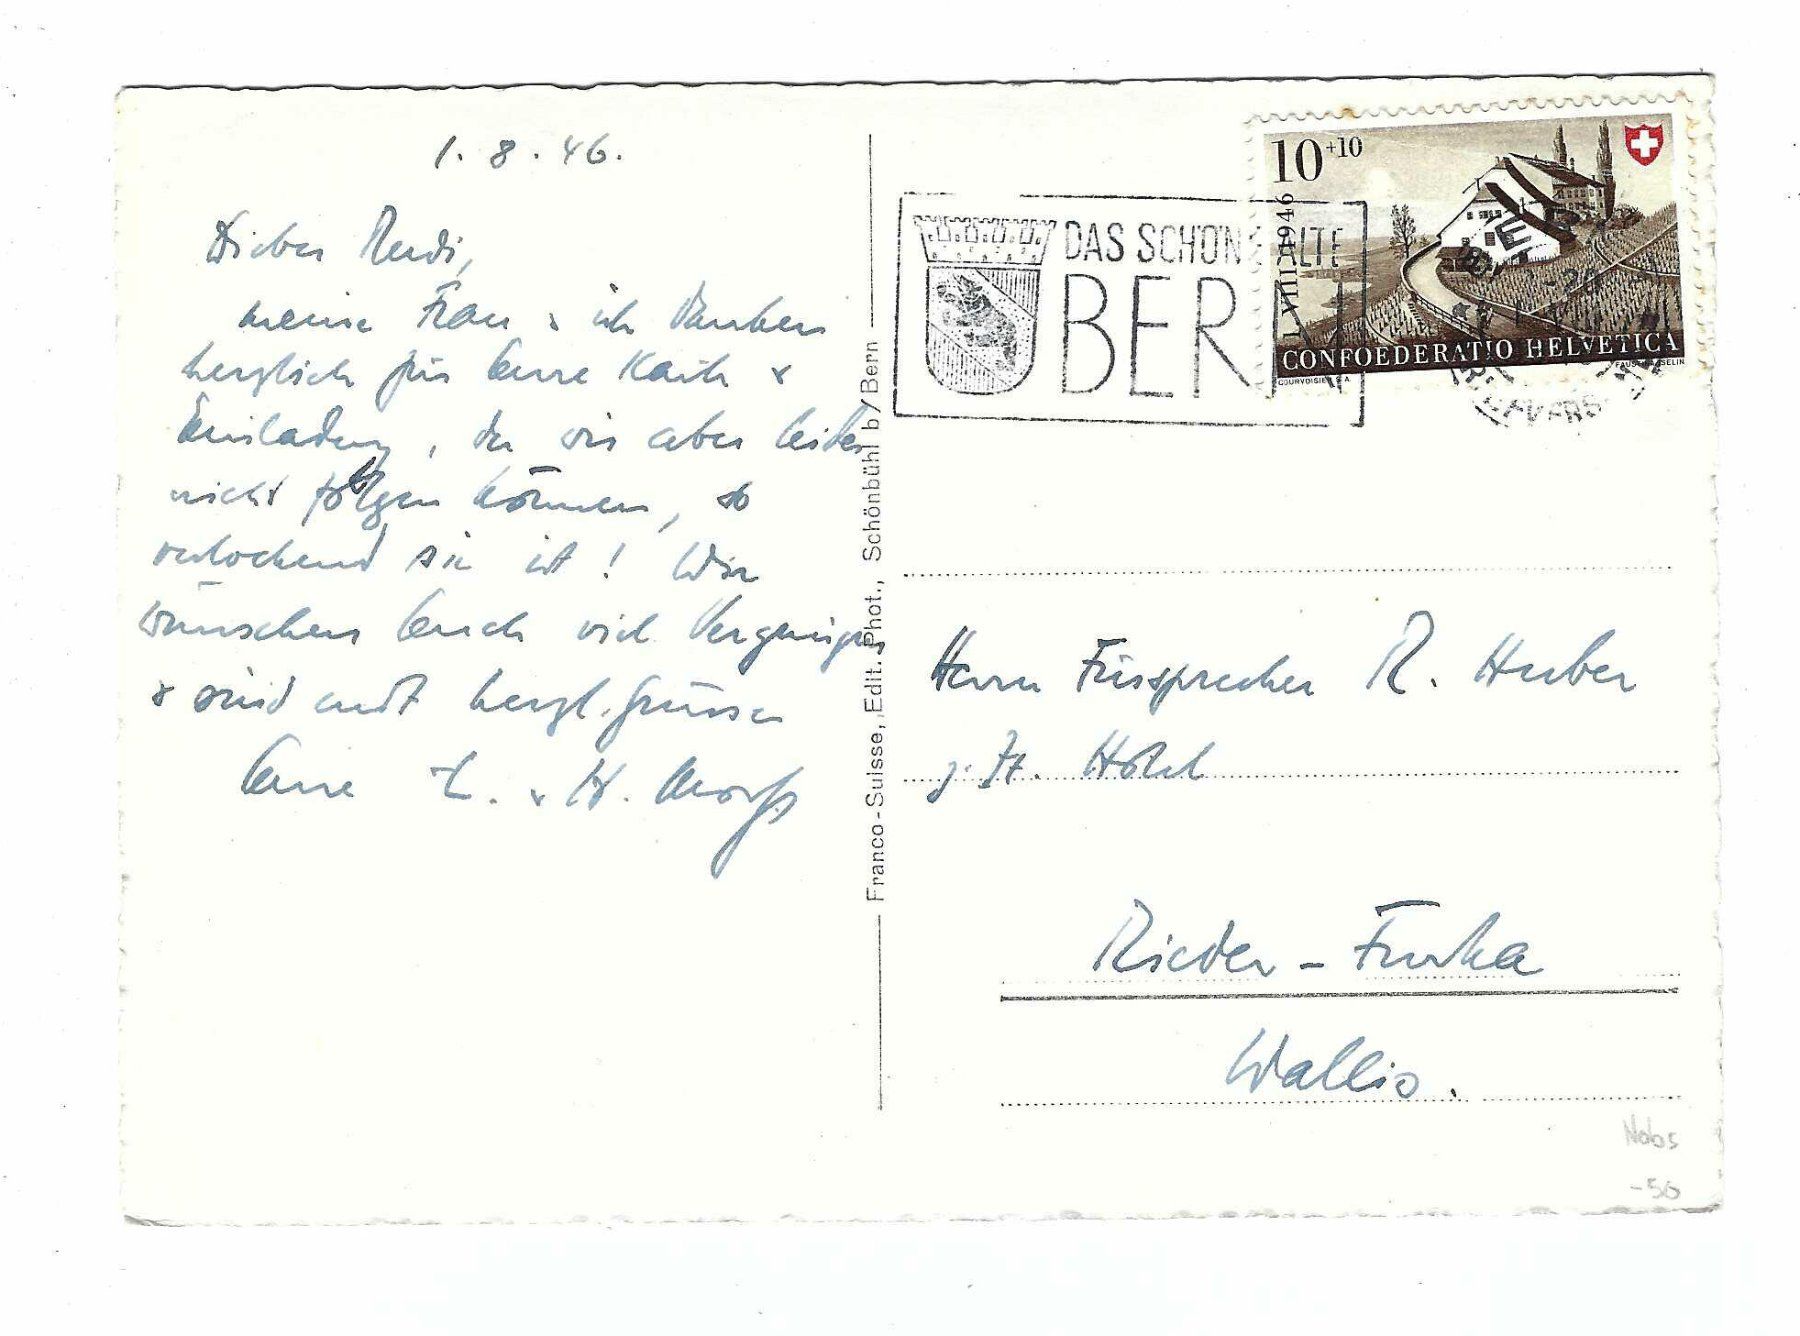 1. 8. 46.
Lieber Ruedi,
meine Frau & ich danken
herzlich für Eure Karte &
Einladung, der wir aber leider
nicht folgen können, so
verlockend sie ist! Wir
wünschen Euch viel Vergnügen
& sind mit herzl. Grüssen
Eure L. & H.
Franco-Suisse, Edit. Phot., Schönbühl b/Bern
DAS SCHÖNE ALTE
BERN
10+10
1.VIII.1946
CONFOEDERATIO HELVETICA
COURVOISIER S A
BERN
BRIEFVERS
Herrn Fürsprecher R. Huber
z. Zt. Hotel
Rieder-Furka
Wallis.
Nobs
-50